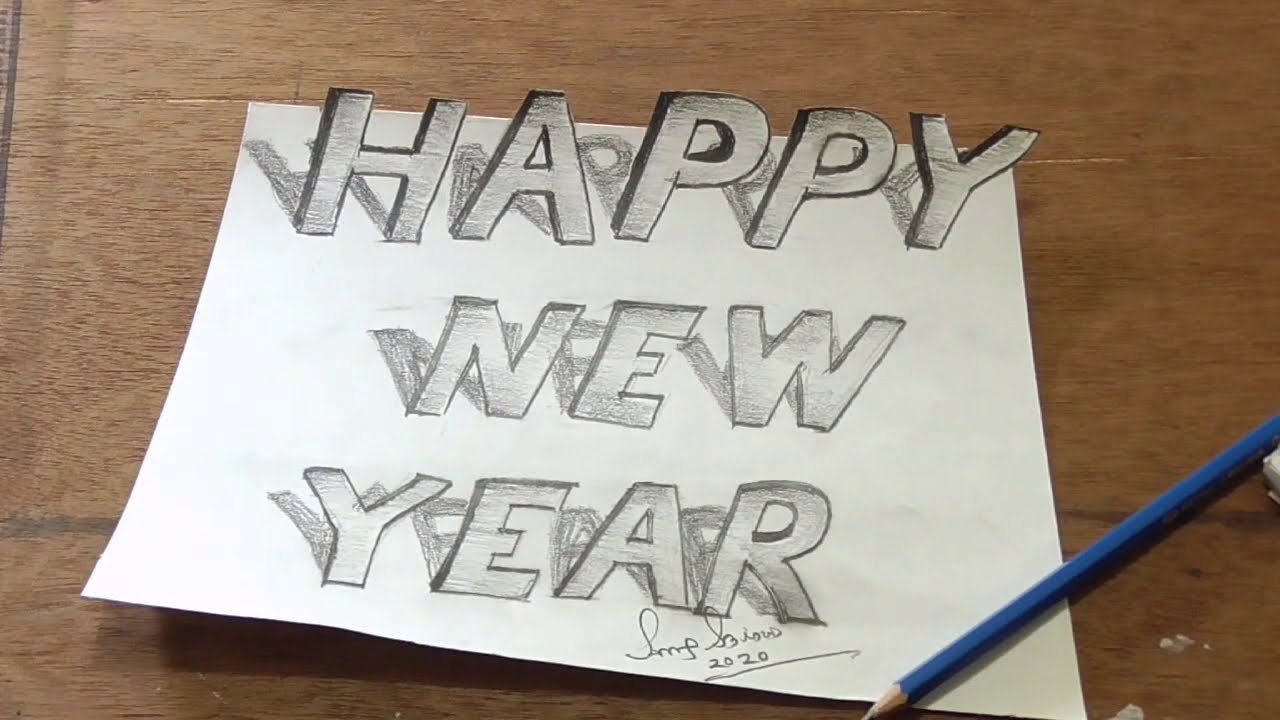 HAPPY
NEW
YEAR
2020